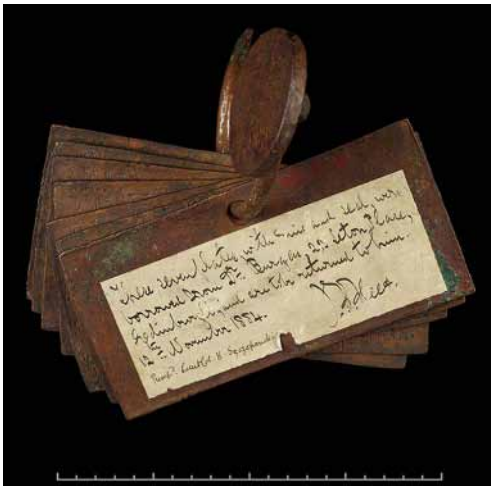 These seven plates with ring and seal, were
borrowed from Dr. Burgess 22 Seton Place,
Edinburgh and are to be returned to him.
12th November 1884.
J. F. Fleet.